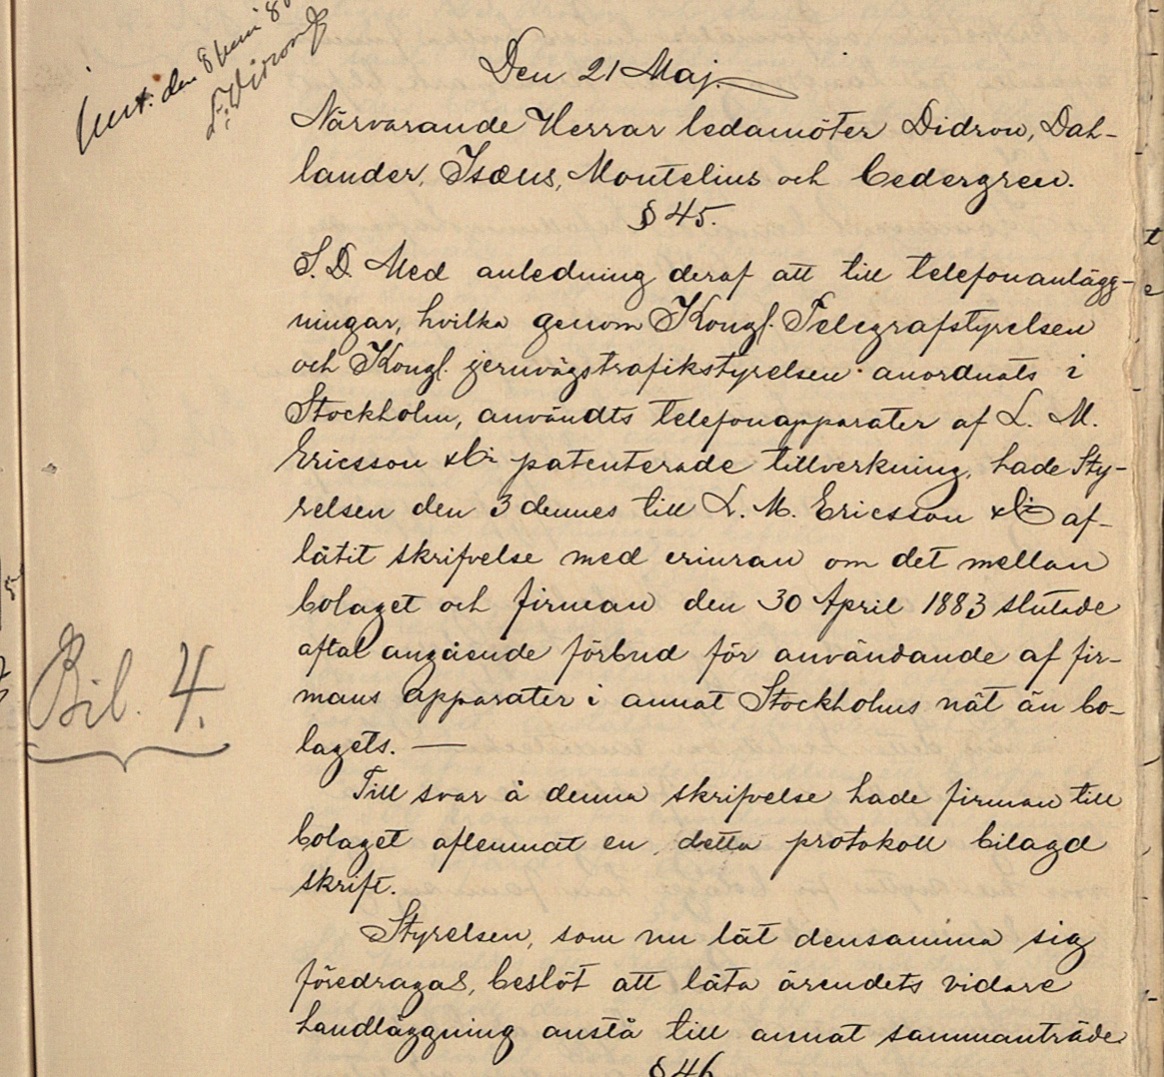 Just. den 8 Juni 8
Didron
Den 21 Maj.
Närvarande Herrar ledamöter Didron, Dah-
lander, Isæus, Montelius och Cedergren.
§ 45.
S. D. Med anledning deraf att till telefonanlägg-
ningar, hvilka genom Kongl. Telegrafstyrelsen
och Kongl. jernvägstrafikstyrelsen anordnats i
Stockholm, användts telefonapparater af L. M.
Ericsson & Co patenterade tillverkning, hade Sty-
relsen den 3 dennes till L. M. Ericsson & Co af-
låtit skrifvelse med erinran om det mellan
bolaget och firman den 30 April 1883 slutade
aftal angående förbud för användande af fir-
mans apparater i annat Stockholms nät än bo-
lagets. —
Bil. 4.
Till svar å denna skrifvelse hade firman till
bolaget aflemnat en, detta protokoll bilagd
skrift.
Styrelsen, som nu låt densamma sig
föredragas, beslöt att låta ärendets vidare
handläggning anstå till annat sammanträde
§ 46